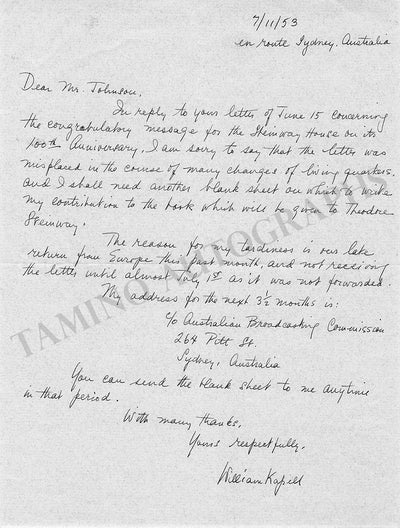 7/11/53
en route Sydney, Australia
Dear Mr. Johnson,
In reply to your letter of June 15 concerning
the congratulatory message for the Steinway House on its
100th Anniversary, I am sorry to say that the letter was
misplaced in the course of many changes of living quarters,
and I shall need another blank sheet on which to write
my contribution to the book which will be given to Theodore
Steinway.
The reason for my tardiness is our late
return from Europe this last month, and not receiving
the letter until almost July 1st as it was not forwarded.
My address for the next 3½ months is:
c/o Australian Broadcasting Commission
264 Pitt St.
Sydney, Australia
You can send the blank sheet to me anytime
in that period.
With many thanks,
Yours respectfully,
William Kapell
TAMINO AUTOGRAPHS